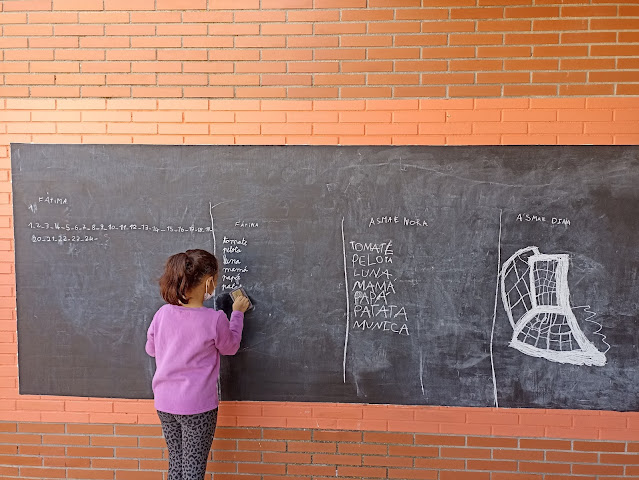 FÁTIMA
1-2-3-4-5-6-7-8-9-10-11-12-13-14-15-16-17-18-19
20-21-22-23-24-
FÁTIMA
tomate
pelota
luna
mamá
papá
ASMAE NORA
TOMATE
PELOTA
LUNA
MAMA
PAPÁ
PATATA
MUNICA
ASMAE DINA